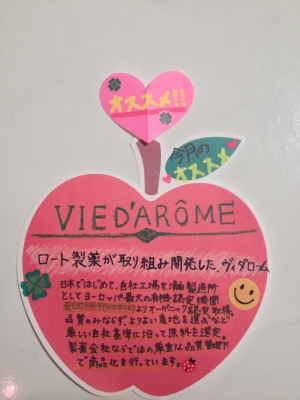 オススメ!!
今月の
オススメ
VIE D'ARÔME
ロート製薬が取り組み開発した、ヴィダローム
日本ではじめて、自社工場を 製造所
としてヨーロッパ最大の有機認定機関
よりオーガニック認定取得。
品質のみならず、よりよい産地を選ぶなど
厳しい自社基準に沿って原料を選定。
製薬会社ならではの厳重な品質管理下
で商品化を行っています。